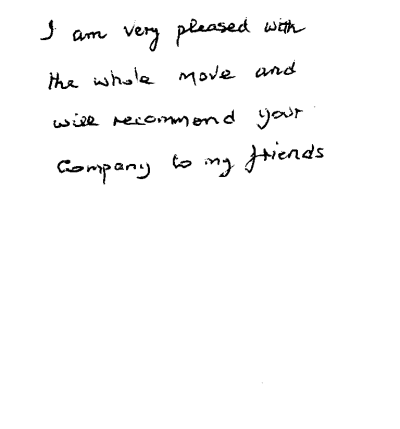 I am very pleased with
the whole move and
will recommend your
Company to my friends